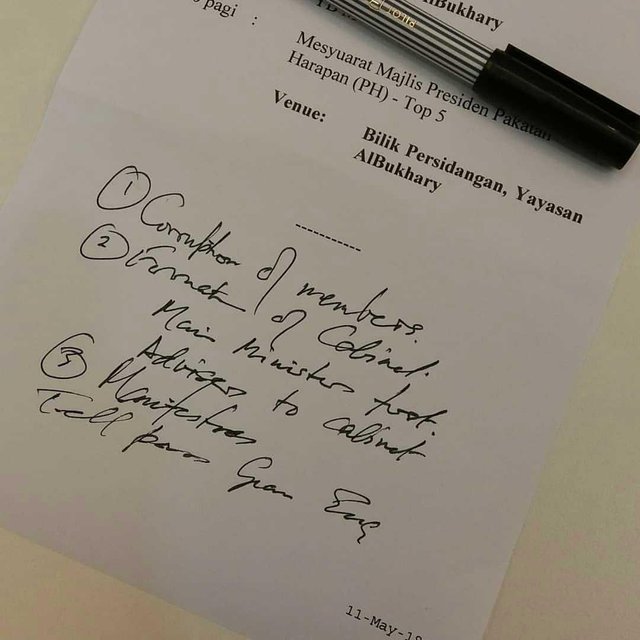 AlBukhary
pagi :
Mesyuarat Majlis Presiden Pakatan
Harapan (PH) - Top 5
Venue: Bilik Persidangan, Yayasan
AlBukhary
-----------
① Corruption of members.
② Format of Cabinet.
Main Ministers first.
Advisers to cabinet
③ Manifestoes
Tell Guan Eng
11-May-18